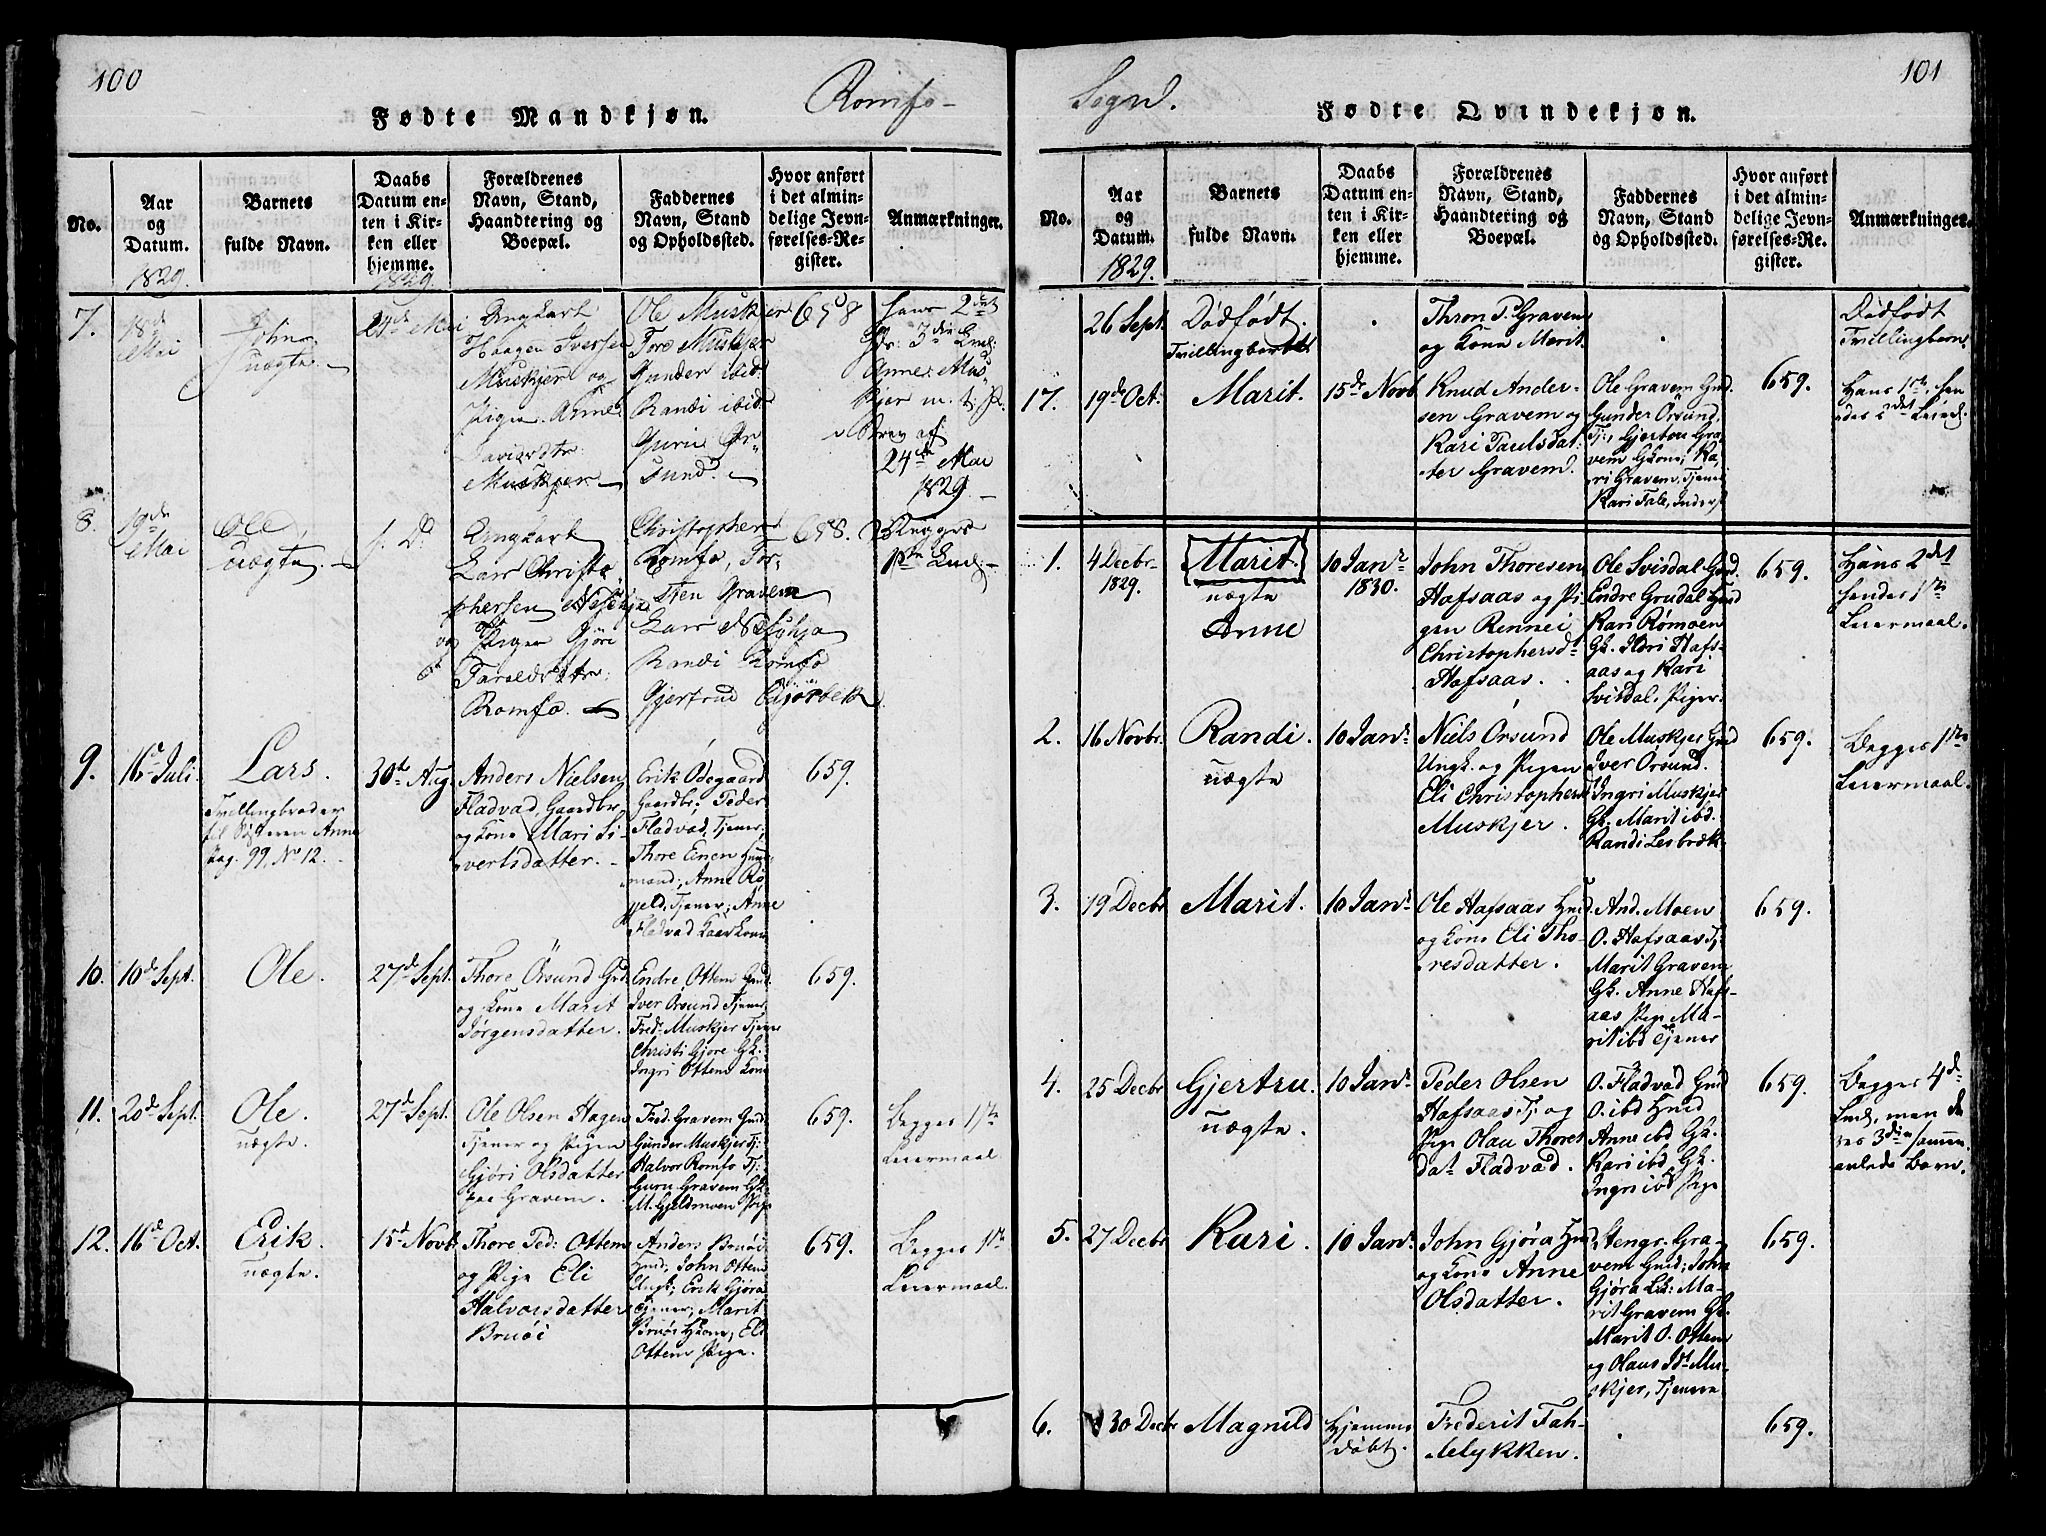 100
Romfo-
Fødte Mandkjøn.
No.
Aar
og
Datum.
1829.
Barnets
fulde Navn.
Daabs
Datum en-
ten i Kir-
ken eller
hjemme.
1829.
Forældrenes
Navn, Stand,
Haandtering og
Boepæl.
Faddernes
Navn, Stand
og Opholdssted.
Hvor anført
i det almin-
delige Jevn-
førelses-Re-
gister.
Anmærkninger.
7.
18de
Mai
John
uægte.
24de Mai
Ungkarl
Haagen Iversen
Muskjer og
Pigen Anne
Muskjer.
Ole Muskjer
Tore Muskjer
Gunder ibid
Randi ibid
Guru Ør-
sund.
658
hans 2det
3die
Anne Mus-
kjer
24de Mai
1829.
8.
19de
Mai
Ole
uægte.
s. D.
Ungkarl
Lars Christo-
phersen
og Pigen Gjöri
Romfo.
Christopher
Romfo, Tor-
sten Gravem
Lars
Randi Romfo
Gjertrud
658.
Begges
1ste
9.
16de Juli.
Lars.
Tvillingbroder
til Søsteren Anne
Pag. 99. No 12.
30te Aug.
Anders Nielsen
Fladvad, Gaardbr.
og Kone Mari Si-
vertsdatter.
Erik Ödegaard
Gaardbr; Peder
Fladvad, Tjener;
Thore Einen Huus-
mand; Anne Rö-
Tjener; Anne
Fladvad Kaarkone
659.
10.
10de Sept.
Ole.
27de Sept.
Thore Örsund Gmd.
og Kone Marit
Jörgensdatter.
Endre Ottem Gmd.
Iver Örsund Tjener
Fredr. Muskjer Tjener
Christi Gjöre Gk.
Ingri Ottem Kone
659.
11.
20de Sept.
Ole.
uægte.
27de Sept.
Ole Olsen Hagen
Tjener og Pigen
Gjöri Olsdatter
paa Gravem.
Fred. Gravem Gmd
Gunder Muskjer Tj:
Halvor Romfo Tj:
Guru Gravem Gk.
M. Gjeldmoen Pige
659.
Begges 1ste
Leiermaal
12.
16de Oct.
Erik.
uægte.
15de Novb.
Thore Ped: Ottem
og Pige Eli
Halvorsdatter
Bruöi
Anders Bruöi
Hmd; John Ottem
Ungk; Erik Gjöra
Tjener; Marit
Bruöi Hkone; Eli
Ottem Pige.
659.
Begges 1ste
Leiermaal.
101
Sogn.
Fødte Qvindekjøn.
No.
Aar
og
Datum.
1829.
Barnets
fulde Navn.
Daabs
Datum en-
ten i Kir-
ken eller
hjemme.
Forældrenes
Navn, Stand,
Haandtering og
Boepæl.
Faddernes
Navn, Stand
og Opholdssted.
Hvor anført
i det almin-
delige Jevn-
førelses-Re-
gister.
Anmærkninger.
26 Sept.
Dödfödt.
Tvillingbarn
Thron P. Gravem
og Kone Marit.
Dödfödt
Tvillingbarn.
17.
19de Oct.
Marit.
15de Novb.
Knud Ander-
sen Gravem og
Kari Paulsdat-
ter Gravem.
Ole Gravem Gmd.
Gunder Örsund,
Tj:, Gjertru Gra-
vem Gkone; Ka-
ri Gravem, Tjener
Kari Fale, Inders.
659.
Hans 1ste, hen-
des 2det Leierm.
1.
4 Decbr
1829.
Marit.
uægte
Anne
10 Janr
1830.
John Thoresen
Hafsaas og Pi-
gen Rennei
Christophersdr
Hafsaas.
Ole Svisdal Gmd.
Endre Grudal Hmd
Kari Römoen
Gk. Kari Hafs-
aas og Kari
Svisdal, Piger.
659.
Hans 2det
hendes 1ste
Leiermaal.
2.
16 Novbr.
Randi.
uægte
10 Janr.
Niels Örsund
Ungk. og Pigen
Eli Christophersd
Muskjer.
Ole Muskjer Gmd
Iver Örsund.
Ingri Muskjer
Gk. Marit ibd.
Randi Lesbræk
659.
Begges 1ste
Leiermaal.
3.
19 Decbr
Marit.
10 Janr.
Ole Hafsaas Hmd.
og Kone Eli Tho-
resdatter.
And. Moen
O. Hafsaas Tj:
Marit Gravem
Gk. Anne Hafs-
aas Pige Ma-
rit ibd Tjener
659.
4.
25 Decbr
Gjertru.
uægte.
10 Janr.
Peder Olsen
Hafsaas Tj: og
Pige Olau Thores-
dat Fladvad.
O. Fladvad Gmd
O. ibd Hmd
Anne ibd Gk.
Kari ibd Gk.
Ingri ibd Pige
659.
Begges 4de
Leierm., men de-
res 3die sammen
avlede Barn.
5.
27 Decbr
Kari.
10 Janr.
John Gjöra Hmd.
og Kone Anne
Olsdatter.
Stengr. Gra-
vem Gmd; John
Gjöra Ldk: Ma-
rit Gravem Gk.
Marit O. Ottem
og Olaus Jdr Mu-
skjer, Tjenere
659.
6.
30 Decbr
Magnild
Hjemme
döbt.
Frederik Fah-
lelykken.
659.